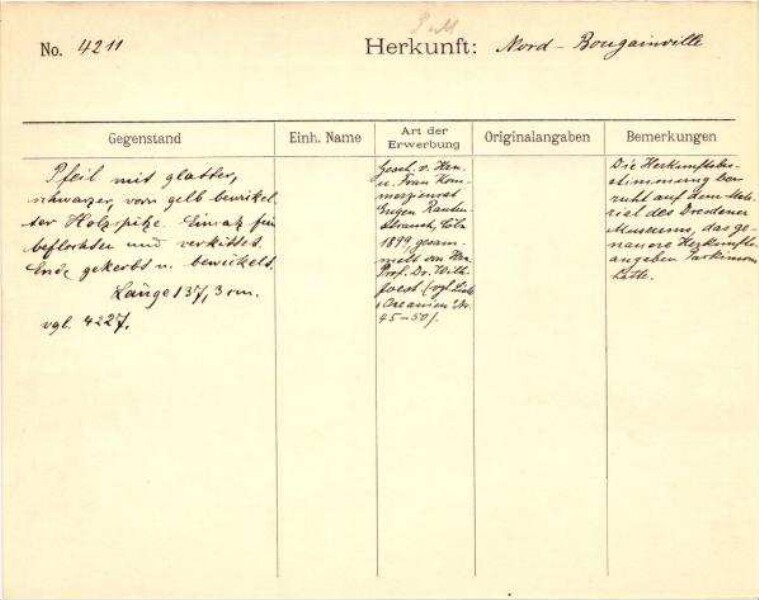 No. 4211
Herkunft: Nord-Bougainville
Gegenstand
Einh. Name
Art der Erwerbung
Originalangaben
Bemerkungen
Pfeil mit glatter,
schwarzer, vorn gelb bewickel-
ter Holzspitze. Einsatz fein
beflochten und verkittet.
Ende gekerbt u. bewickelt.
Länge 137,3 cm.
vgl. 4227.
Gesch. v. Hrn.
u. Frau Kom-
merzienrat
Eugen Rauten-
strauch, Cöln
1899, gesam-
melt von Hrn.
Prof. Dr. Wilh.
Joest (vgl. Liste
Oceanien Nr.
45-50).
Die Herkunftsbe-
stimmung be-
ruht auf dem Mate-
rial des Dresdener
Museums, das ge-
nauere Herkunfts-
angaben Parkinsons